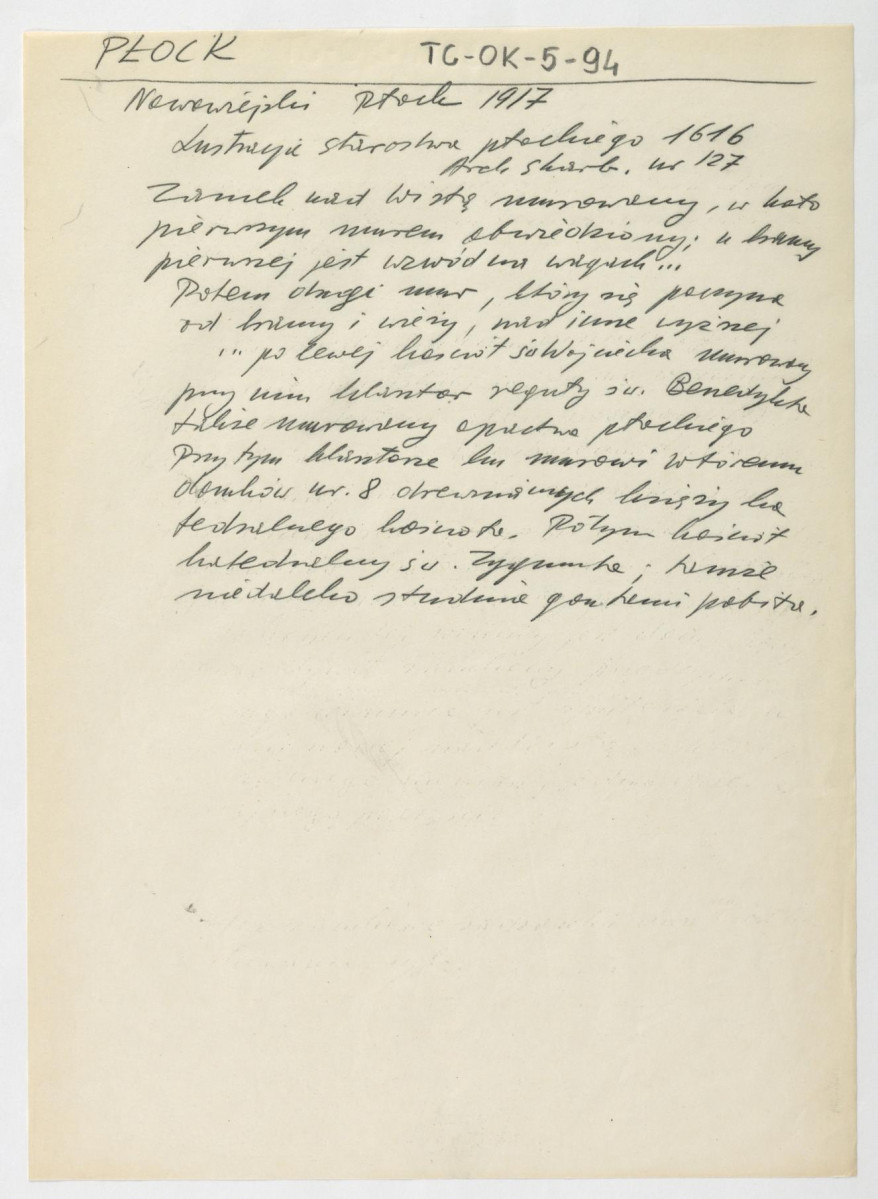 PŁOCK TG-OK-5-94
Nowowiejski Płock 1917
Lustracja starostwa płockiego 1616
Arch skarb. nr 127
Zamek nad Wisłą murowany, w koło
pierwszym murem obwiedziony; u bramy
pierwszej jest wzwód na wagach...
Potem drugi mur, który się poczyna
od bramy i wieży, nad inne wyższej
... po lewej kościół ś. Wojciecha murowany
przy nim klasztor reguły św. Benedykta
także murowany opactwa płockiego
Przy tym klasztorze ku murowi wtóremu
domków nr. 8 drewnianych księży ka
tedralnego kościoła. Potym kościół
katedralny św. Zygmunta; tamże
niedaleko studnia gontami pobita.